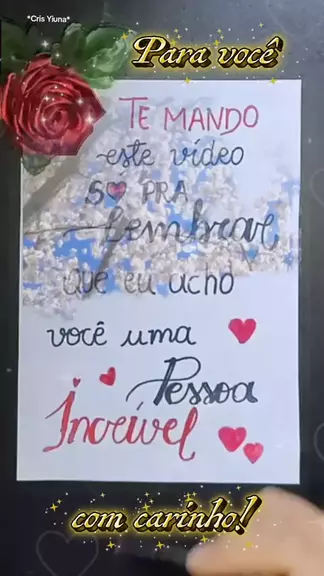 *Cris Yiuna*
Para você
TE MANDO
este vídeo
Só PRA
Lembrar
que eu acho
você uma
Pessoa
Incrível
com carinho!